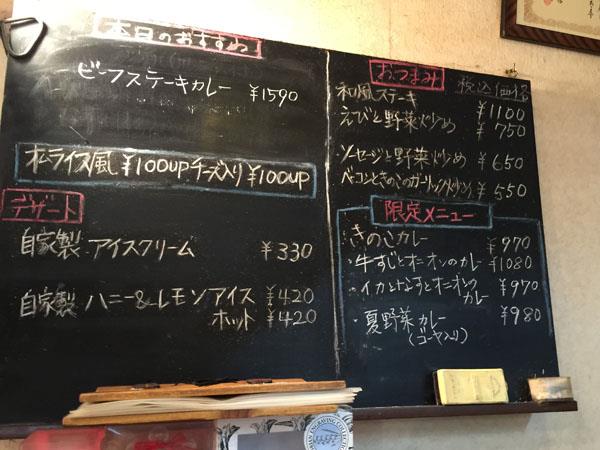 本日のおすすめ
ビーフステーキカレー ¥1590
オムライス風 ¥100UP チーズ入り ¥100UP
デザート
自家製 アイスクリーム ¥330
自家製 ハニー&レモン アイス ¥420
ホット ¥420
おつまみ 税込価格
和風ステーキ ¥1100
えびと野菜炒め ¥750
ソーセージと野菜炒め ¥650
ベーコンときのこのガーリック炒め ¥550
限定メニュー
きのこカレー ¥970
・牛すじとオニオンのカレー ¥1080
・イカとなすとオニオンの
カレー ¥970
・夏野菜カレー ¥980
(ゴーヤ入り)